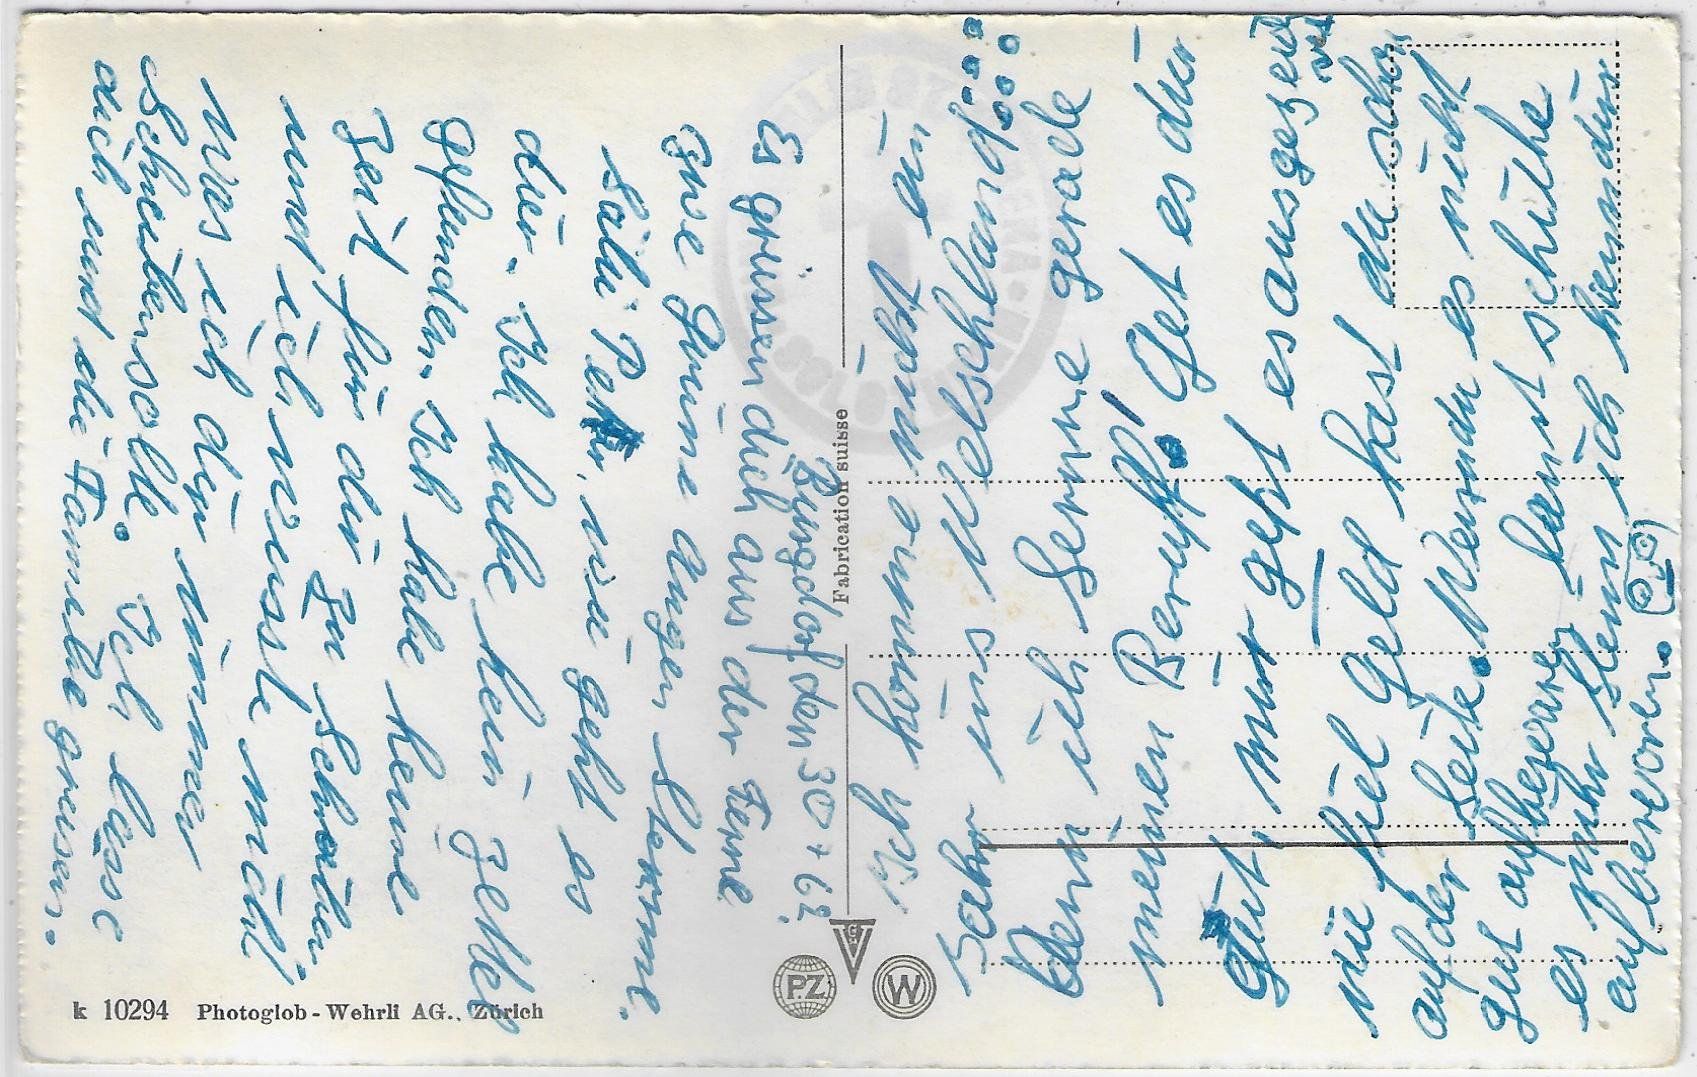 Burgdorf den 30 + 62
Es grüssen dich aus der Ferne
Zwe Grüne augen Sterne.
Sali Peter, wie geht es
dir. Ich habe kein Zettel
gefunden. Ich habe keine
Zeit für dir zu Schreiben
und ich wusste nicht
was ich dir immer
Schreiben solle. Ich lasse
dich und die Familie grüssen.
Ich komme nicht ein
Jahr ins Welschland
denn ich lerne gerade
meinen Beruff! Get es dir
gut, mir geht es ausgezeich
wie fiel Geld hast du schon
auf der Seite. Wenn du es nicht
gut aufbewaren kenst schike
es mihr ich kenn dir
aufbewaren.
Fabrication suisse
VG
PZ
W
k 10294 Photoglob - Wehrli AG., Zürich